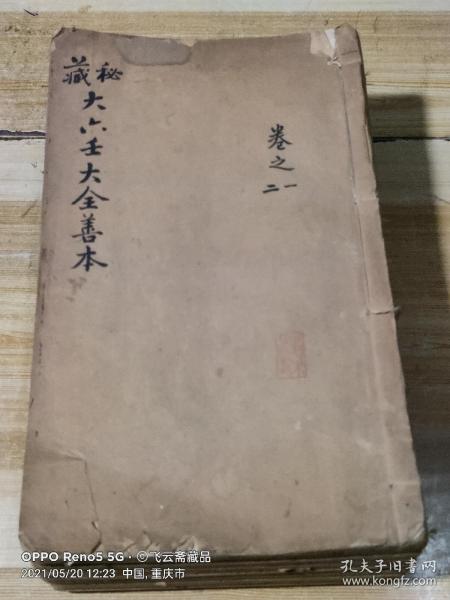 秘藏大六壬大全善本
卷之一二
OPPO Reno5 5G · ⓒ飞云斋藏品
2021/05/20 12:23 中国,重庆市
孔夫子旧书网
www.kongfz.com